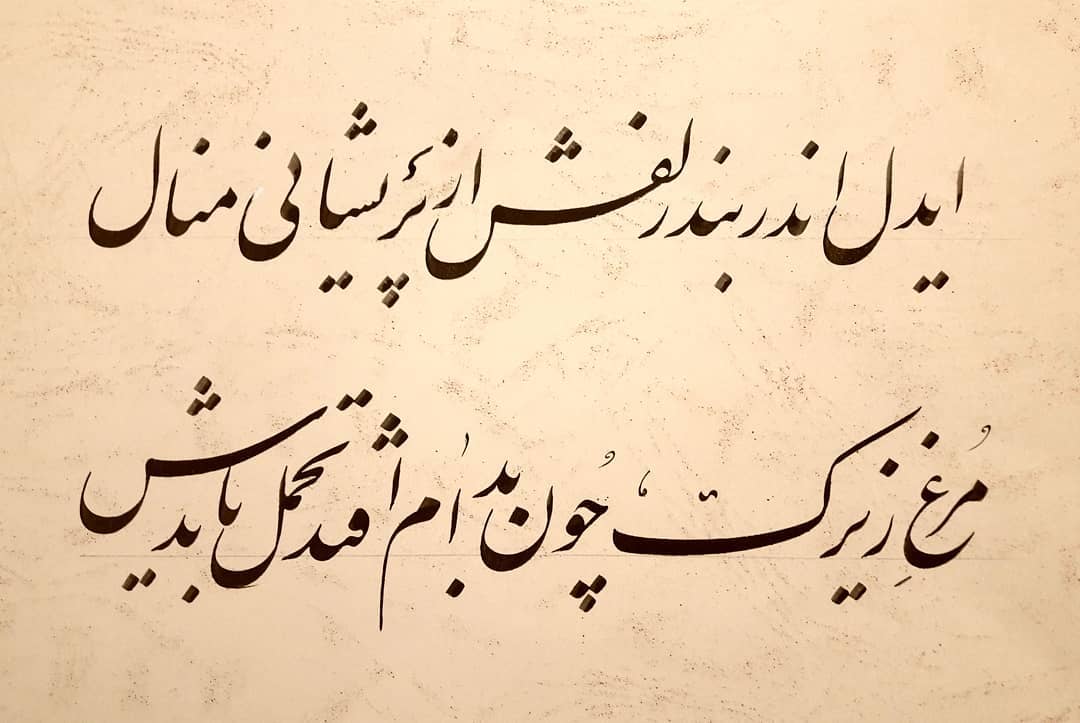 ایدل اندر بند زلفش از پریشانی منال
مرغ زیرک چون بدام افتد تحمل بایدش